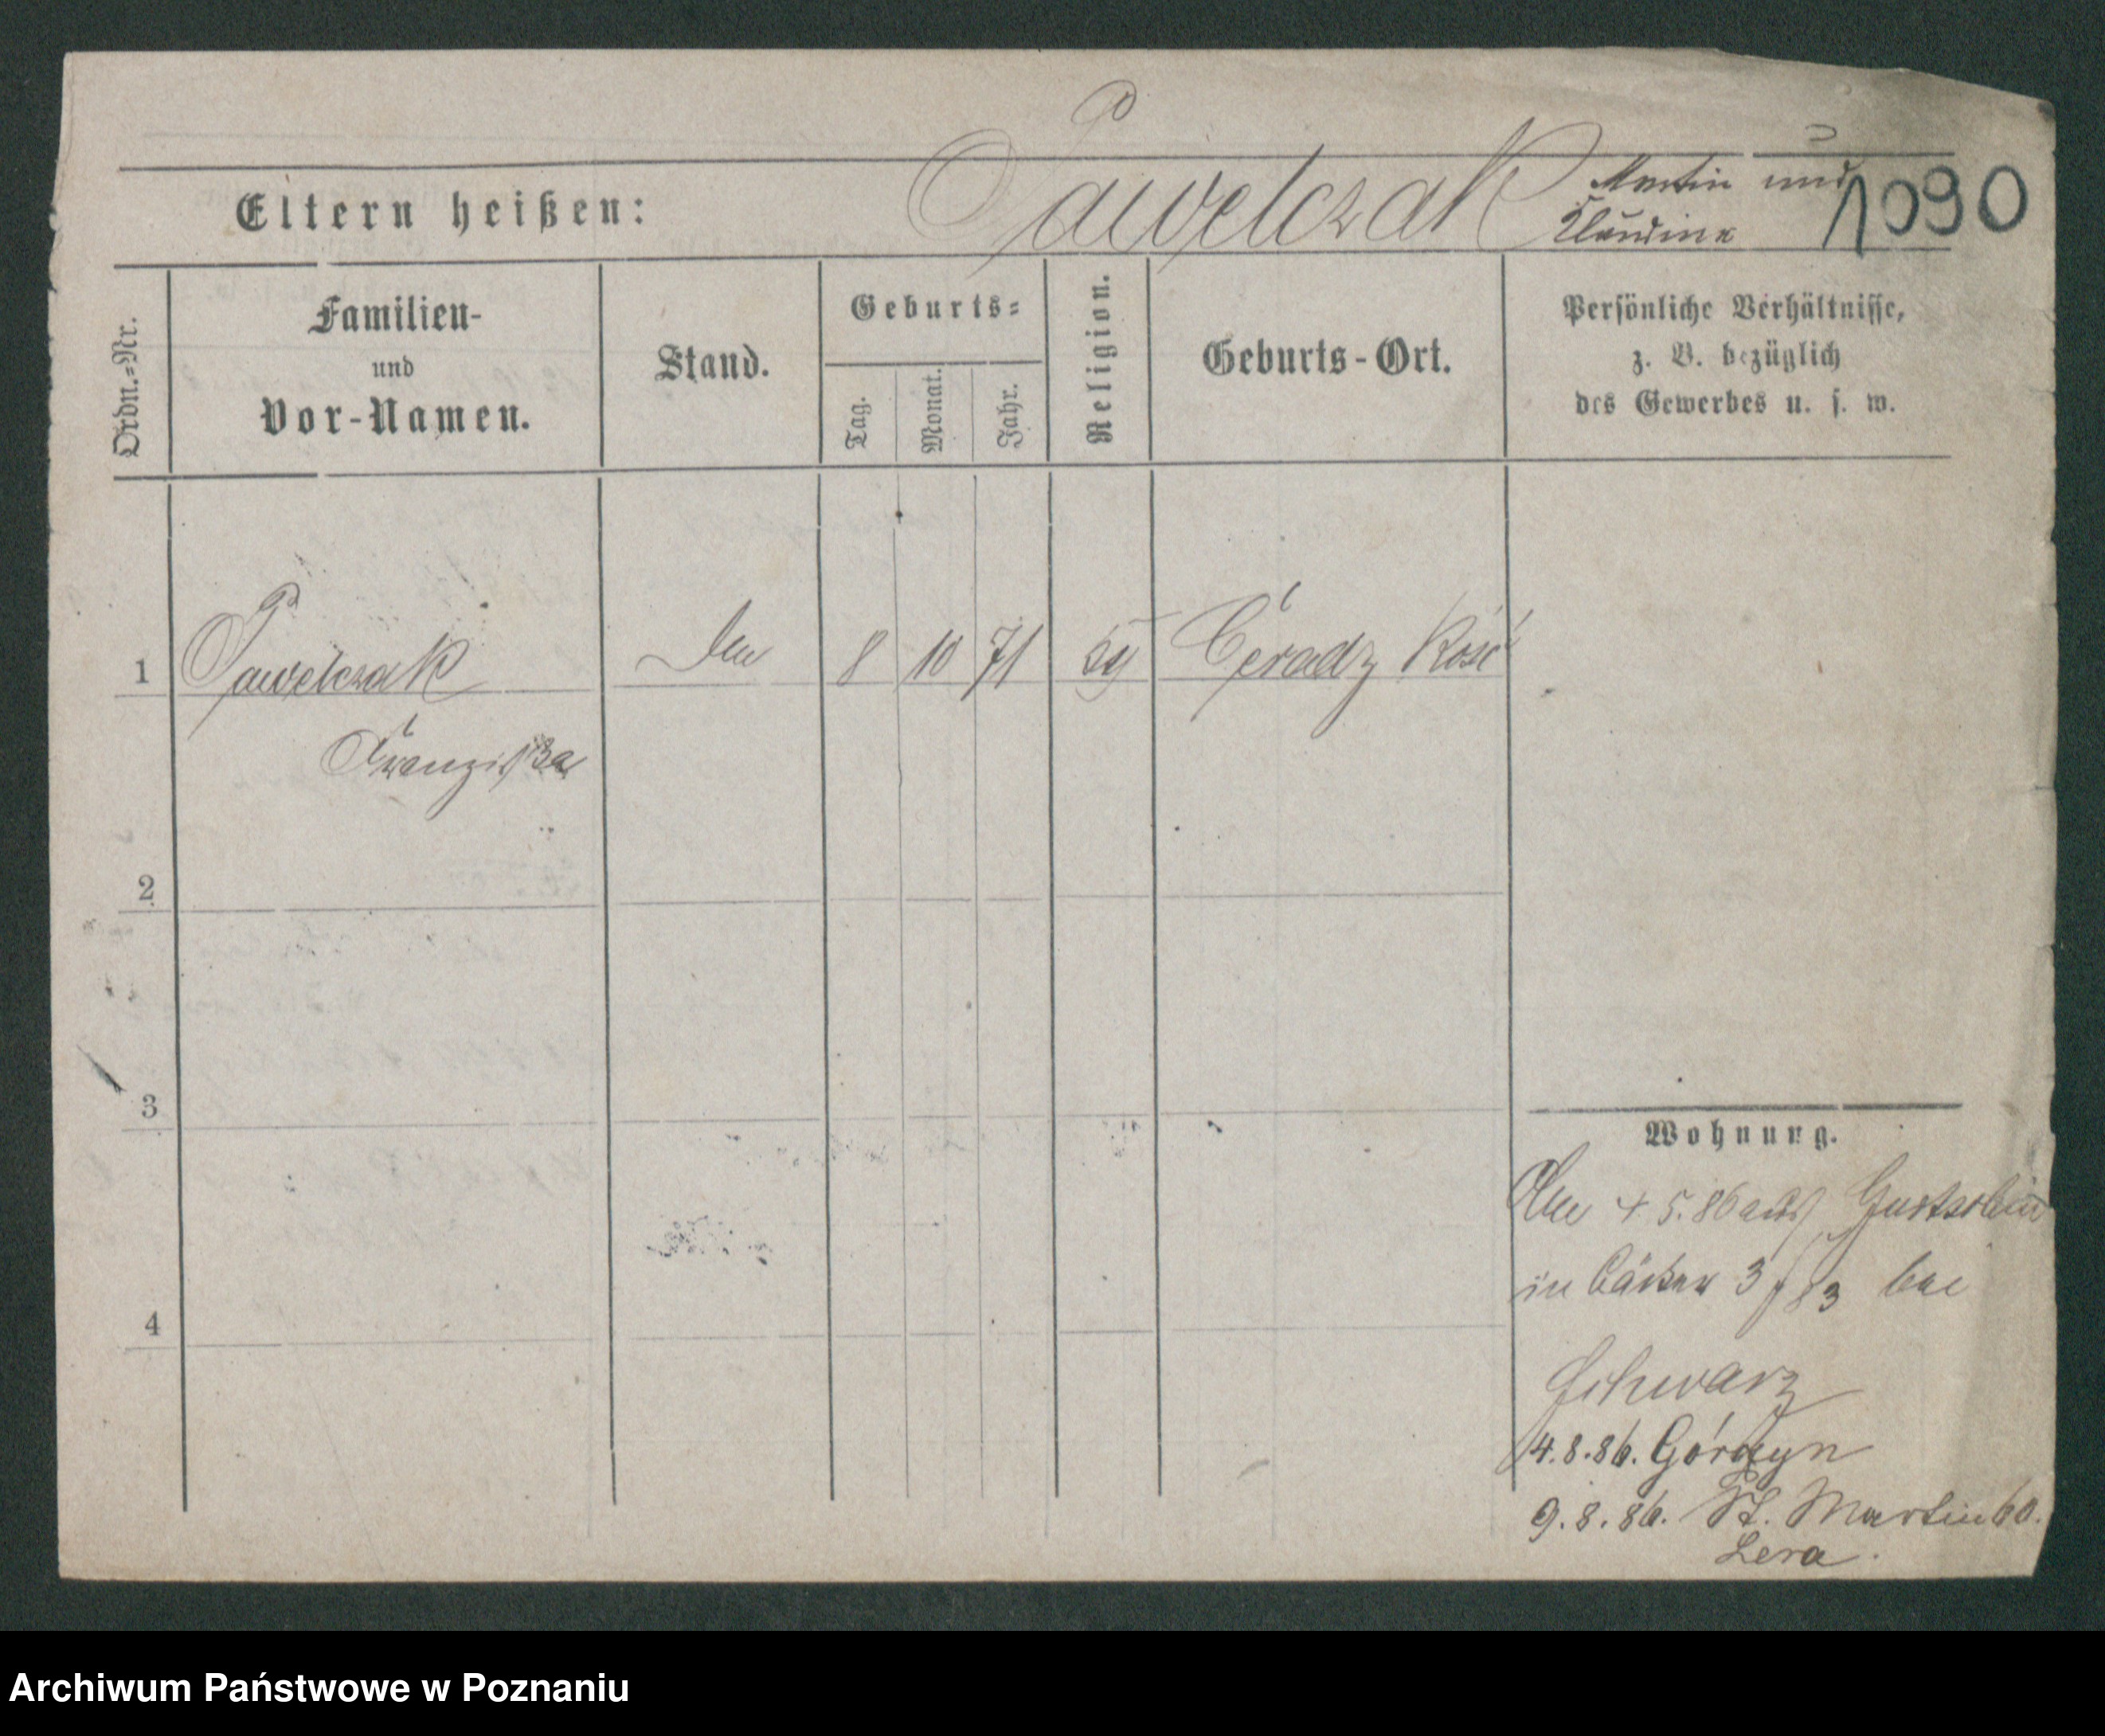 Eltern heißen: Pawelczak Martin und
Klaudina
1090
Ordn.=Nr.
Familien-
und
Vor-Namen.
Stand.
Geburts=
Tag.
Monat.
Jahr.
Religion.
Geburts-Ort.
Persönliche Verhältnisse,
z. B. bezüglich
des Gewerbes u. s. w.
1 Pawelczak 8 10 71
Franziska
2
3
4
Wohnung.
5.86 aus
in bei
Schwarz
4.8.86. Górczyn
9.8.86. St. Martin 60.
Lera.
Archiwum Państwowe w Poznaniu